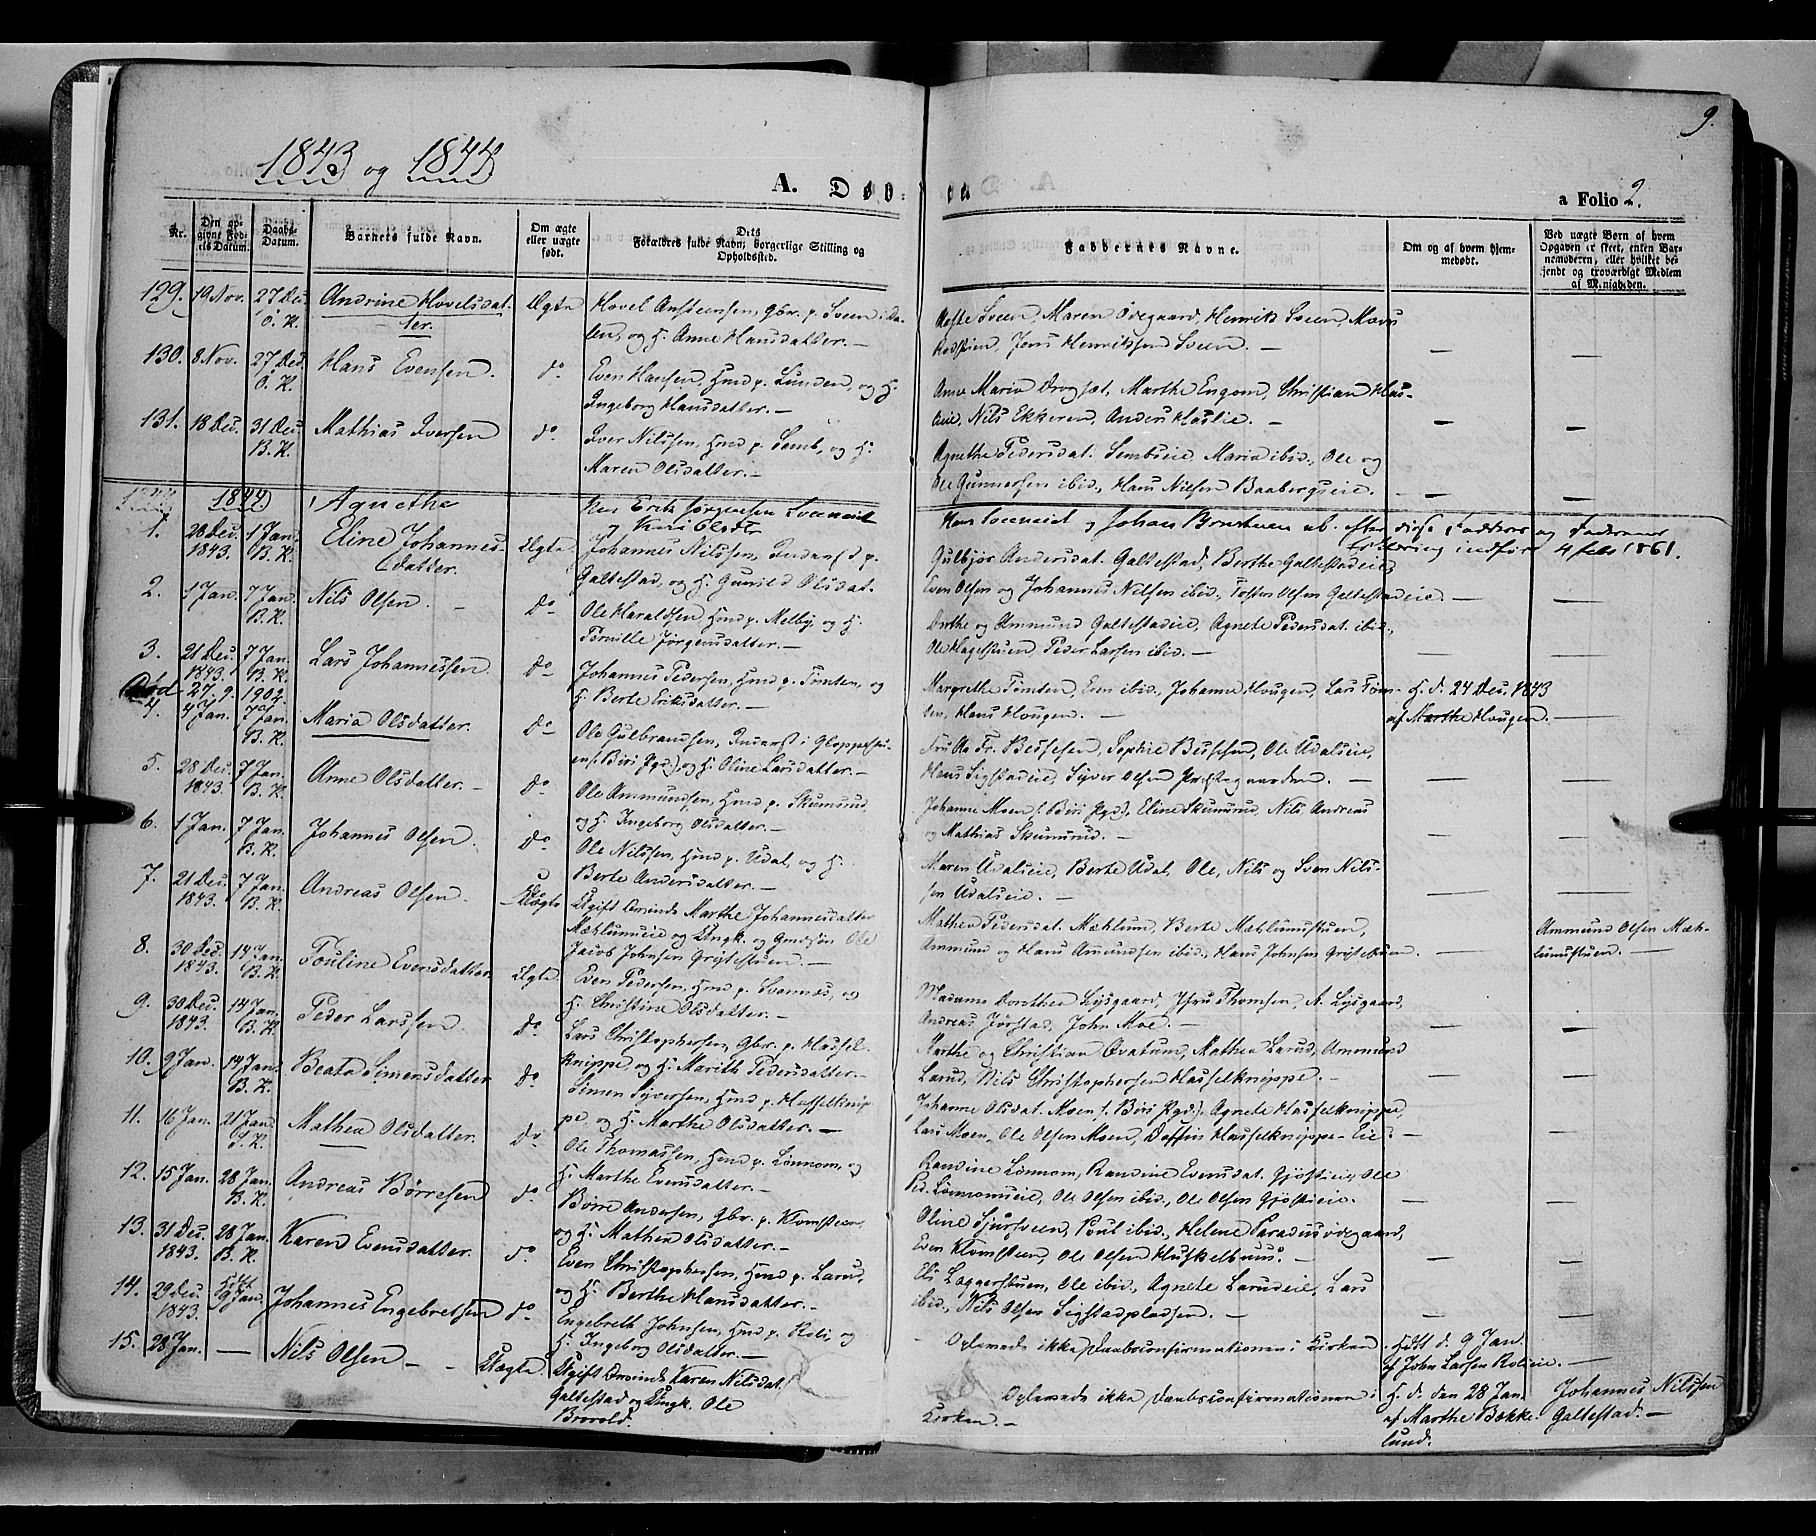 9.
1843 og 1844
A. Døb-
te
a Folio 2.
Nr.
Den opgivne Fødsels Datum.
Daabs-Datum.
Barnets fulde Navn.
Om ægte eller uægte født.
Dets Forældres fulde Navn, borgerlige Stilling og Opholdssted.
Faddernes Navne.
Om og af hvem hjemmedøbt.
Ved uægte Børn af hvem Opgaven er skeet, enten Barnemoderen, eller hvilket betjendt og troværdigt Medlem af Menigheden.
129. 19 Nov. 27 Dec. Andrine Hovelsdatter. Ægte Hovel Ansteensen, Gbr. p. Sveen i Dalen, og H. Anne Hansdatter.— Sveen, Maren Ødegaard, Henrik Sveen, Jens Henriksen Sveen. —
130. 8 Nov. 27 Dec. Hans Evensen. do Even Hansen, Hmd p. Lunden, og H. Ingeborg Hansdatter.— Anne Maria Marthe Engen, Christian Nils Ekkeren, Anders Haslie. — — —
131. 18 Dec. 31 Dec. B.K. Mathias Iversen do Iver Nilssen, Hmd p. Semb, og H. Maren Olsdatter.— Agnethe Pedersdat. Sembseie, Maria ibid., Ole og Ole Gunnersen ibid., Hans Nilsen Baabergseie. — —
1844
Agnethe
Hus Erik Jørgensen Sveeneiet og Kari Olsdtr
Hans Sveeneiet og Johan efter disse Fadderes og Faderens Erklæring indført 4 feb 1861.
1. 28 Dec. 1843. 1 Jan. B.K. Eline Johannesdatter. Ægte Johannes Nilssen, Inderst p. Galtestad, og H. Gunild Olsdat. Gulbjør Andersdat. Galtestad, Berthe Galtestadeie, Even Olsen og Johannes Nilsen ibid., Tosten Olsen Galtestadeie. — —
2. 1 Jan. 7 Jan. B.K. Nils Olsen. — Do Ole Haraldsen, Hmd p. Melby, og H. Pernille Jørgensdatter.— Dorthe og Ammund Galtestadeie, Agnete Pedersdat. ibid., Ole Hagestuen, Peder Larsen ibid.— — —
3. 21 Dec. 1843. 7 Jan. B.K. Lars Johannessen. do Johannes Pedersen, Hmd p. Tømten, og H. Berte Eriksdatter.— Margrethe Tømten, Even ibid., Johanne Hougen, Lars Tømten, Hans Hougen. — H. d. 24 Dec. 1843 af Marthe Hougen. —
Død 27.9.1902.
4. 4 Jan. 7 Jan. B.K. Maria Olsdatter. do Ole Gulbrandsen, Inderst i Gloppestuen (Biri Pgd), og H. Oline Larsdatter.— Fru Fr. Bessesen, Sophie Bessesen, Ole Udalseie, Hans Sigstadeie, Syver Olsen Præstegaarden. — — —
5. 28 Dec. 1843. 7 Jan. B.K. Anne Olsdatter. — Do Ole Ammundsen, Hmd p. Skumsrud, og H. Ingeborg Olsdatter.— Johanne Moen (Biri Pgd), Eline Skumsrud, Nils Andreas og Mathias Skumsrud. — — —
6. 1 Jan. 7 Jan. B.K. Johannes Olsen. Do Ole Nilssen, Hmd p. Udal, og H. Berte Andersdatter.— Maren Udalseie, Berte Udal, Ole, Nils og Sven Nilssen Udalseie.— — —
7. 21 Dec. 1843. 7 Jan. B.K. Andreas Olsen. Uægte Ugift Qvinde Marthe Johannesdatter Mæhlumseie og Ungk. og Gmdsøn Ole Jacob Johnsen Grytestuen.— Mathea Pedersdat. Mæhlum, Berte Mæhlumstuen, Ammund og Hans Amundsen ibid., Hans Johnsen Grytestuen. — Ammund Olsen Mæhlumstuen. —
8. 30 Dec. 1843. 14 Jan. B.K. Pouline Evensdatter. Ægte Even Pedersen, Hmd p. Svennes, og H. Christine Olsdatter.— Madame Dorothea Lysgaard, Jfru Thomsen, A. Lysgaard, Andreas Jørstad, John Moe. — — —
9. 30 Dec. 1843. 14 Jan. B.K. Peder Larssen. Do Lars Christophersen, Gbr. p. Hasselknippe, og H. Marith Pedersdatter.— Marthe og Christian Qvatum, Mathea Larud, Ammund Larud, Nils Christophersen Hasselknippe. — — —
10. 9 Jan. 14 Jan. B.K. Beata Simensdatter. Do Simen Syversen, Hmd p. Hasselknippe, og H. Marthe Olsdatter. — Johanne Olsdat. Moen (Biri Pgd.), Agnete Hasselknippe, Lars Moen, Ole Olsen Moen, Hasselknippe-Eie. — —
11. 16 Jan. 21 Jan. Mathea Olsdatter. Do Ole Thomassen, Hmd p. Lønnom, og H. Marthe Evensdatter.— Randine Lønnom, Randine Evensdat. Gjøstseie, Ole Ped. Lønnomseie, Ole Olsen ibid., Ole Olsen Gjøstseie. — —
12. 15 Jan. 28 Jan. B.K. Andreas Børresen do Børre Andersen, Gbr. p. Klomsteen, og H. Mathea Olsdatter.— Oline Sjursveen, Poul ibid., Helene Paradisødegaard, Even Klomsteen, Ole Olsen Huskelhuus. — — —
13. 31 Dec. 1843. 28 Jan. B.K. Karen Evensdatter. do Even Christophersen, Hmd p. Larud, og H. Berthe Hansdatter.— Eli Laggerstuen, Ole ibid., Agnete Larudeie, Lars ibid., Nils Olsen Sigstadpladsen. — — —
14. 29 Dec. 1843. Hdbt 9 Jan. Johannes Engebretsen do Engebreth Johnsen, Hmd p. Roli, og H. Ingeborg Olsdatter.— Oplevede ikke Daabsconfirmationen i Kirken. Hdbt d. 9 Jan. af John Larsen Rolieie. —
15. 28 Jan. — Nils Olsen — Uægte. Ugift Qvinde Karen Nilsdat. Galtestad og Ungk. Ole Brovold. Oplevede ikke Daabsconfirmationen i Kirken. — H. d. den 28 Jan. af Marthe Bækkelund. Johannes Nilssen Galtestad. —